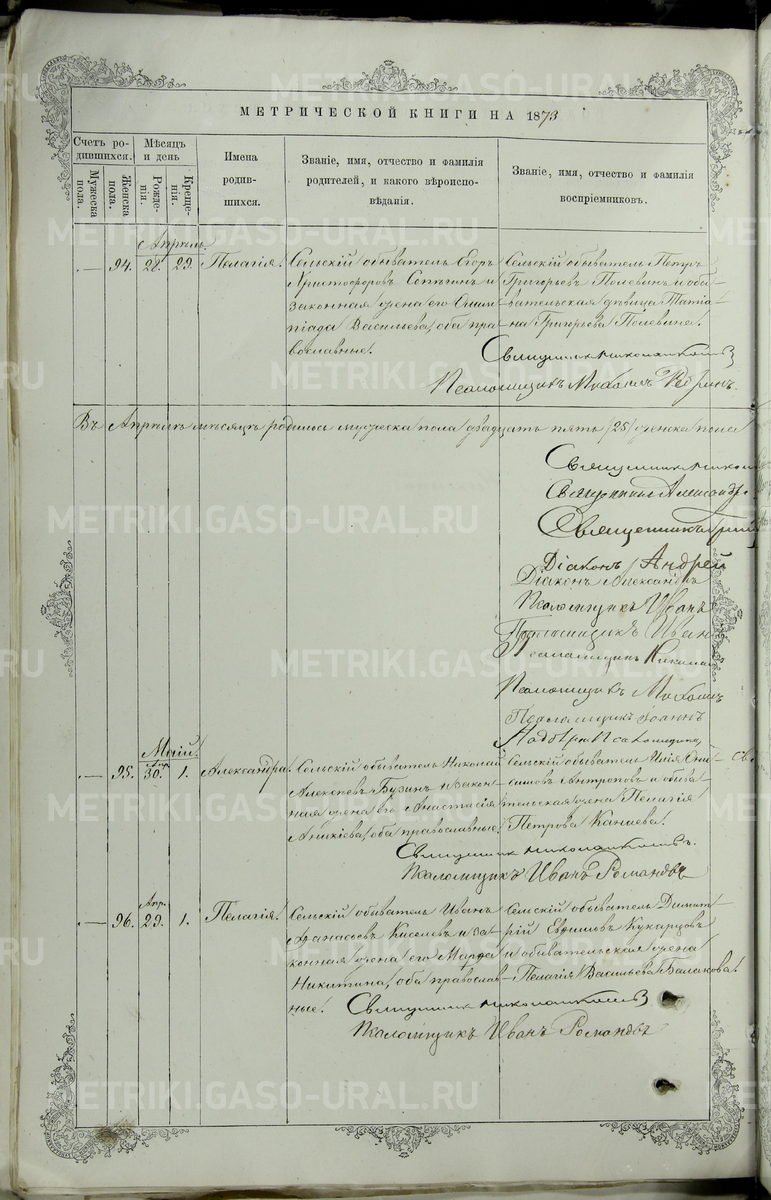 МЕТРИЧЕСКОЙ КНИГИ НА 1873
Счетъ ро-
дившихся.
Мужеска пола.
Женска пола.
Мѣсяцъ
и день
Рожде-
нія.
Креще-
нія.
Имена
родив-
шихся.
Званіе, имя, отчество и фамилія
родителей, и какого вѣроиспо-
вѣданія.
Званіе, имя, отчество и фамилія
воспріемниковъ.
Апрѣль.
94. 28. 29. Пелагія.
Сельскій обыватель Егоръ
Христофоровъ и
законная жена его Олим-
піада Васильева, оба пра-
вославные.
Сельскій обыватель Петръ
Григорьевъ Полевинъ и обы-
вательская дѣвица Татіа-
на Григорьева Полевина.
Священникъ
Псаломщикъ Михаилъ
Въ Апрѣлѣ мѣсяцѣ родилось мужеска пола двадцать пять /25/ женска пола
Священникъ
Священникъ Александръ
Священникъ
Діаконъ Андрей
Діаконъ Александръ
Псаломщикъ Иванъ
Псаломщикъ Иван
Псаломщикъ Никола
Псаломщикъ Михаилъ
Псаломщикъ Іоаннъ
Май.
95. Апр. 30. 1. Александра.
Сельскій обыватель Николай
Алексѣевъ Бузинъ и закон-
ная жена его Анастасія
Аникіева, оба православные.
Сельскій обыватель Илія Они-
симовъ Антроповъ и обыва-
тельская жена Пелагія
Петрова Канаева.
Священникъ
Псаломщикъ Иванъ Романовъ
96. Апр. 29. 1. Пелагія.
Сельскій обыватель Иванъ
Афанасьевъ Киселевъ и за-
конная жена его Марфа
Никитина, оба православ-
ные.
Сельскій обыватель Димит-
рій Евфимовъ Кукарцовъ
и обывательская жена
Пелагія Васильева Балакова.
Священникъ
Псаломщикъ Иванъ Романовъ
METRIKI.GASO-URAL.RU